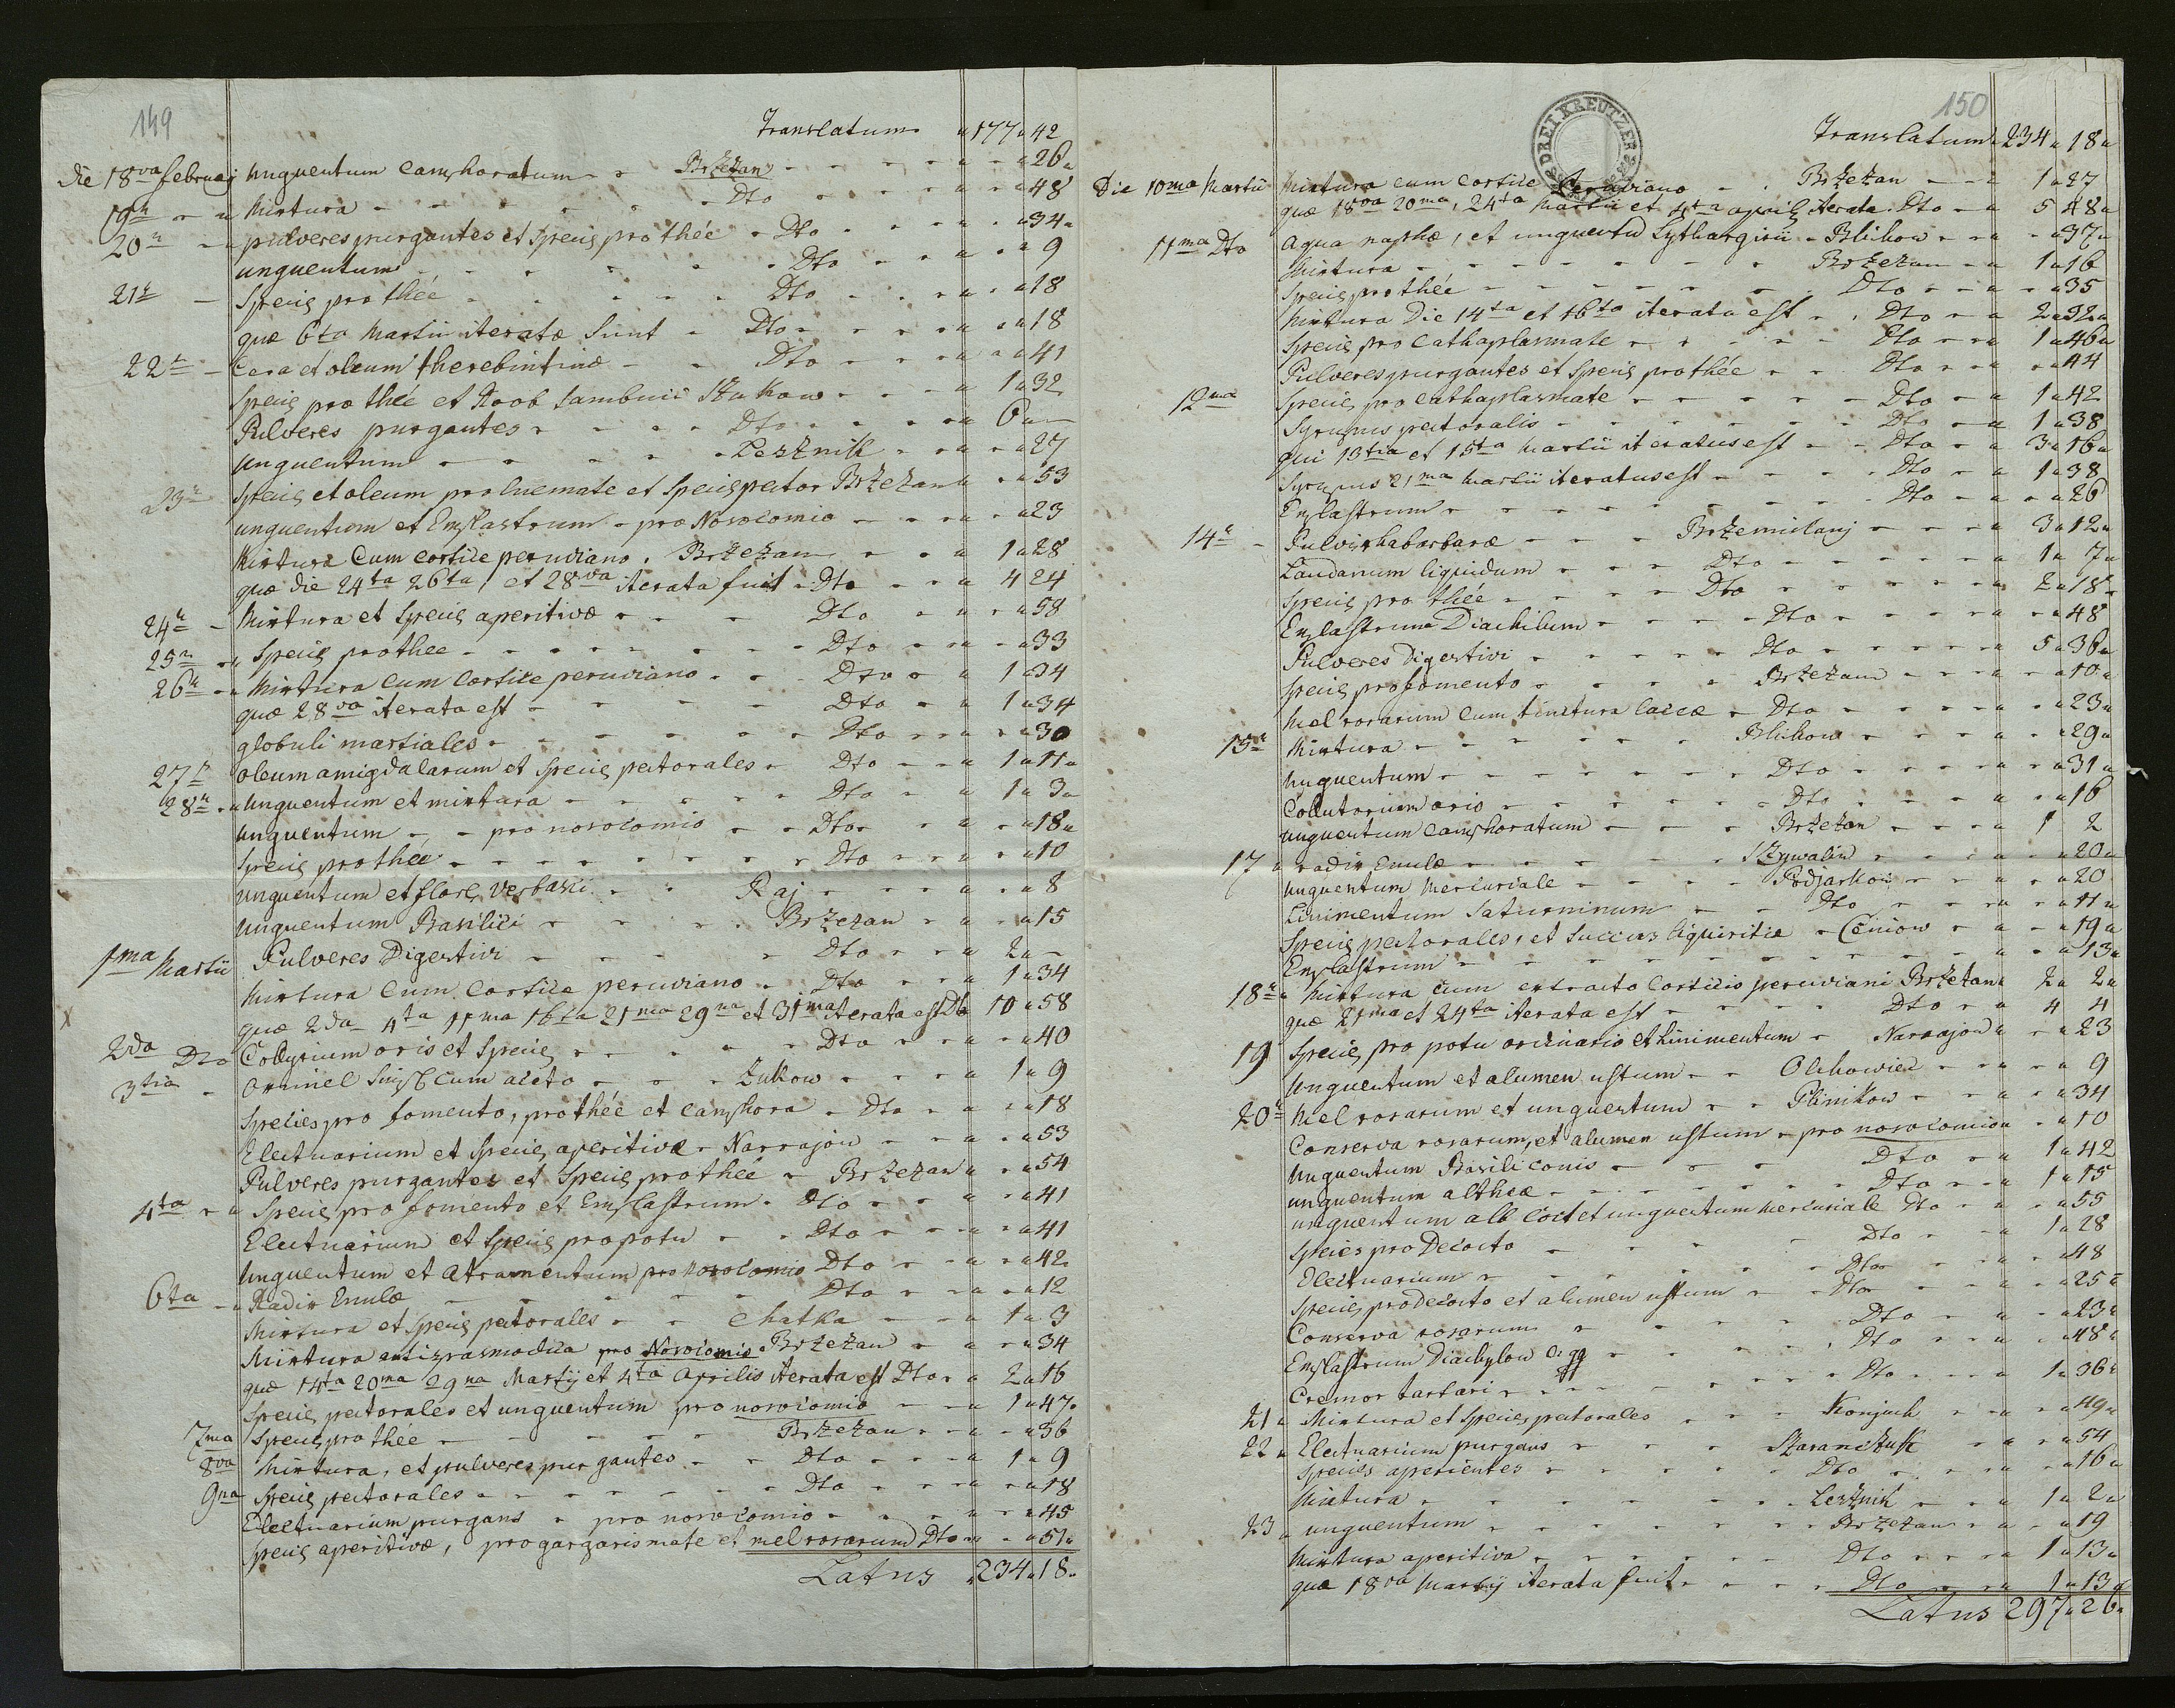 149
Translatum " 177 " 42
Die 18va februarj unguentum camphoratum - Brzeżan - " 26 "
19" - " Mixtura - Dto - " 48
20" - " pulveres purgantes et Species pro thée - Dto - " 34 "
unguentum - Dto - " 9
21" - Species pro thée - Dto - " 18
quæ 6ta Martii iteratæ Sunt - Dto - " 18
22" - Cera et oleum therebintinæ - Dto - " 41
Species pro thée et Roob Sambuci - " 1 " 32
Pulveres purgantes - Dto - " 6 " -
unguentum - Lesznik - " 27
23" Species et oleum pro Enemate et Species pector Brzeżan " - " 53
unguentum et Emplastrum - pro Nosocomio - " 23
Mixtura Cum Cortice peruviano. Brzeżan - " 1 " 28
quæ die 24ta 26ta, et 28va iterata fuit - Dto - " 4 24
24" - Mixtura et Species aperitivæ - Dto - " 58
25" - " Species pro thee - Dto - " 33
26" - " Mixtura Cum Cortice peruviano - Dto - " 1 " 34
quæ 28va iterata est - Dto - " 1 " 34
globuli martiales - Dto - " 30
27" oleum amigdalarum et Species pectorales - Dto - " 1 " 11 "
28" - " unguentum et mixtura - Dto - " 1 " 3 "
unguentum - pro nosocomio - Dto - " 18 "
Species pro thée - Dto - " 10
unguentum et flores verbasci - Raj - " 8
unguentum Basilici - Brzeżan - " 15
1ma Martii Pulveres Digestivi - Dto - " 2 " -
Mixtura Cum Cortice peruviano - Dto - " 1 " 34
quæ 2da 4ta 11ma 16ta 21ma 29na et 31ma iterata est Dto 10 " 58
2da Dto Collyrium oris et Species - Dto - " 40
3tia - Oximel Simpl cum aceto - Żukow - " 1 " 9
Species pro fomento, pro thée et camphora - Dto - " 18
Electuarium et Species aperitivæ - Narrajow - " 53
Pulveres purgantes et Species pro thée - Brzeżan " - " 54
4ta - " Species pro fomento et Emplastrum - Dto - " 41
Electuarium et Species pro potu - Dto - " 41
Unguentum et atramentum pro nosocomio Dto - " 42
6ta - " Radix Enulæ - Dto - " 12
Mixtura et Species pectorales - Chatka - " 1 " 3
Mixtura antispasmodica pro Nosocomio - Brzeżan - " 34
quæ 14ta 20ma 29na Martij et 4ta Aprilis iterata est Dto - " 2 " 16
Species pectorales et unguentum pro nosocomio - " 1 " 47 "
7ma Species pro thée - Brzeżan - " 36
8va Mixtura, et pulveres purgantes - Dto - " 1 " 9
9na Species pectorales - Dto - " 18
Electuarium purgans - pro nosocomio - " 45
Species aperitivæ, pro gargarismate et mel rosarum Dto " - " 51 "
Latus " 234 " 18 "
150
DREI KREUTZER
Translatum " 234 " 18 "
Die 10ma Martii Mixtura cum Cortice Peruviano - Brzeżan - 1 " 27
quæ 18va 20ma, 24ta Martii et 4ta april iterata Dto - " 5 48 "
11ma Dto Aqua naphæ, et unguentu Lythargirii - Blichow - " 37 "
Mixtura - Brzeżan - " 1 " 16
Species pro thée - Dto - " 35
Mixtura Die 14ta et 16ta iterata est - Dto - " 2 " 32 "
Species pro Cathaplasmate - Dto - " 1 " 46 "
Pulveres purgantes et Species pro thée - Dto - " 44
12ma Species pro Cathaplasmate - Dto - " 1 " 42
Syrupus pectoralis - Dto - " 1 " 38
qui 13tia et 15ta Martii iteratus est - Dto - " 3 " 16 "
Syrupus 21ma Martii iteratus est - Dto - " 1 " 38
Emplastrum - Dto - " 26
14" - Pulvis rhabarbaræ - Brzemielanj - " 3 " 12 "
Laudanum liquidum - Dto - " 1 " 7 "
Species pro thée - Dto - " 2 " 18 "
Emplastrum Diachilum - Dto - " 48
Pulveres Digestivi - Dto - " 5 " 36 "
Species pro fomento - Brzeżan - " 10 "
Mel rosarum Cum tinctura laccæ - Dto - " 23 "
15" Mixtura - Blichow - " 29 "
Unguentum - Dto - " 31 "
Collutorium oris - Dto - " 16
unguentum camphoratum - Brzeżan - " 1 2
17 " radix Enulæ - " 20 "
unguentum Mercuriale - Podjarkow - " 20
Linimentum Saturninum - Dto - " 11 "
Species pectorales, et Succus liquiritiæ - Ceniow - " 19 "
Emplastrum - " 13 "
18" " Mixtura cum extracto Corticis peruviani Brzeżan " 2 " 2 "
quæ 21ma et 24ta iterata est - Dto - " 4 4
19 Species pro potu ordinario et Linimentum - Narrajow " - " 23
Unguentum et alumen ustum - Olchowiec - " 9
20" Mel rosarum et unguentum - Plinikow - " 34
Conserva rosarum, et alumen ustum - pro nosocomio " - " 10
Unguentum Basiliconis - Dto - " 1 " 42
unguentum altheæ - Dto - " 1 " 15
unguentum alb Coct et unguentum Mercuriale Dto - " 55
Species pro Decocto - Dto - " 1 " 28
Electuarium - Dto - " 48
Species pro Decocto et alumen ustum - Dto - " 25 "
Conserva rosarum - Dto - " 23 "
Emplastrum Diachylon c. gg - Dto - " 48 "
Cremor tartari - Dto - " 1 " 36 "
21 " Mixtura et Species pectorales - Konjuch - " 49 "
22 " Electuarium purgans - " 54
Species aperientes - Dto - " 16 "
Mixtura - Lesznik - " 1 " 2 "
23 " unguentum - Brzeżan - " 19
Mixtura aperitiva - Dto - " 1 " 13 "
quæ 18va Martij iterata fuit - Dto - " 1 " 13 "
Latus 297 " 26 "